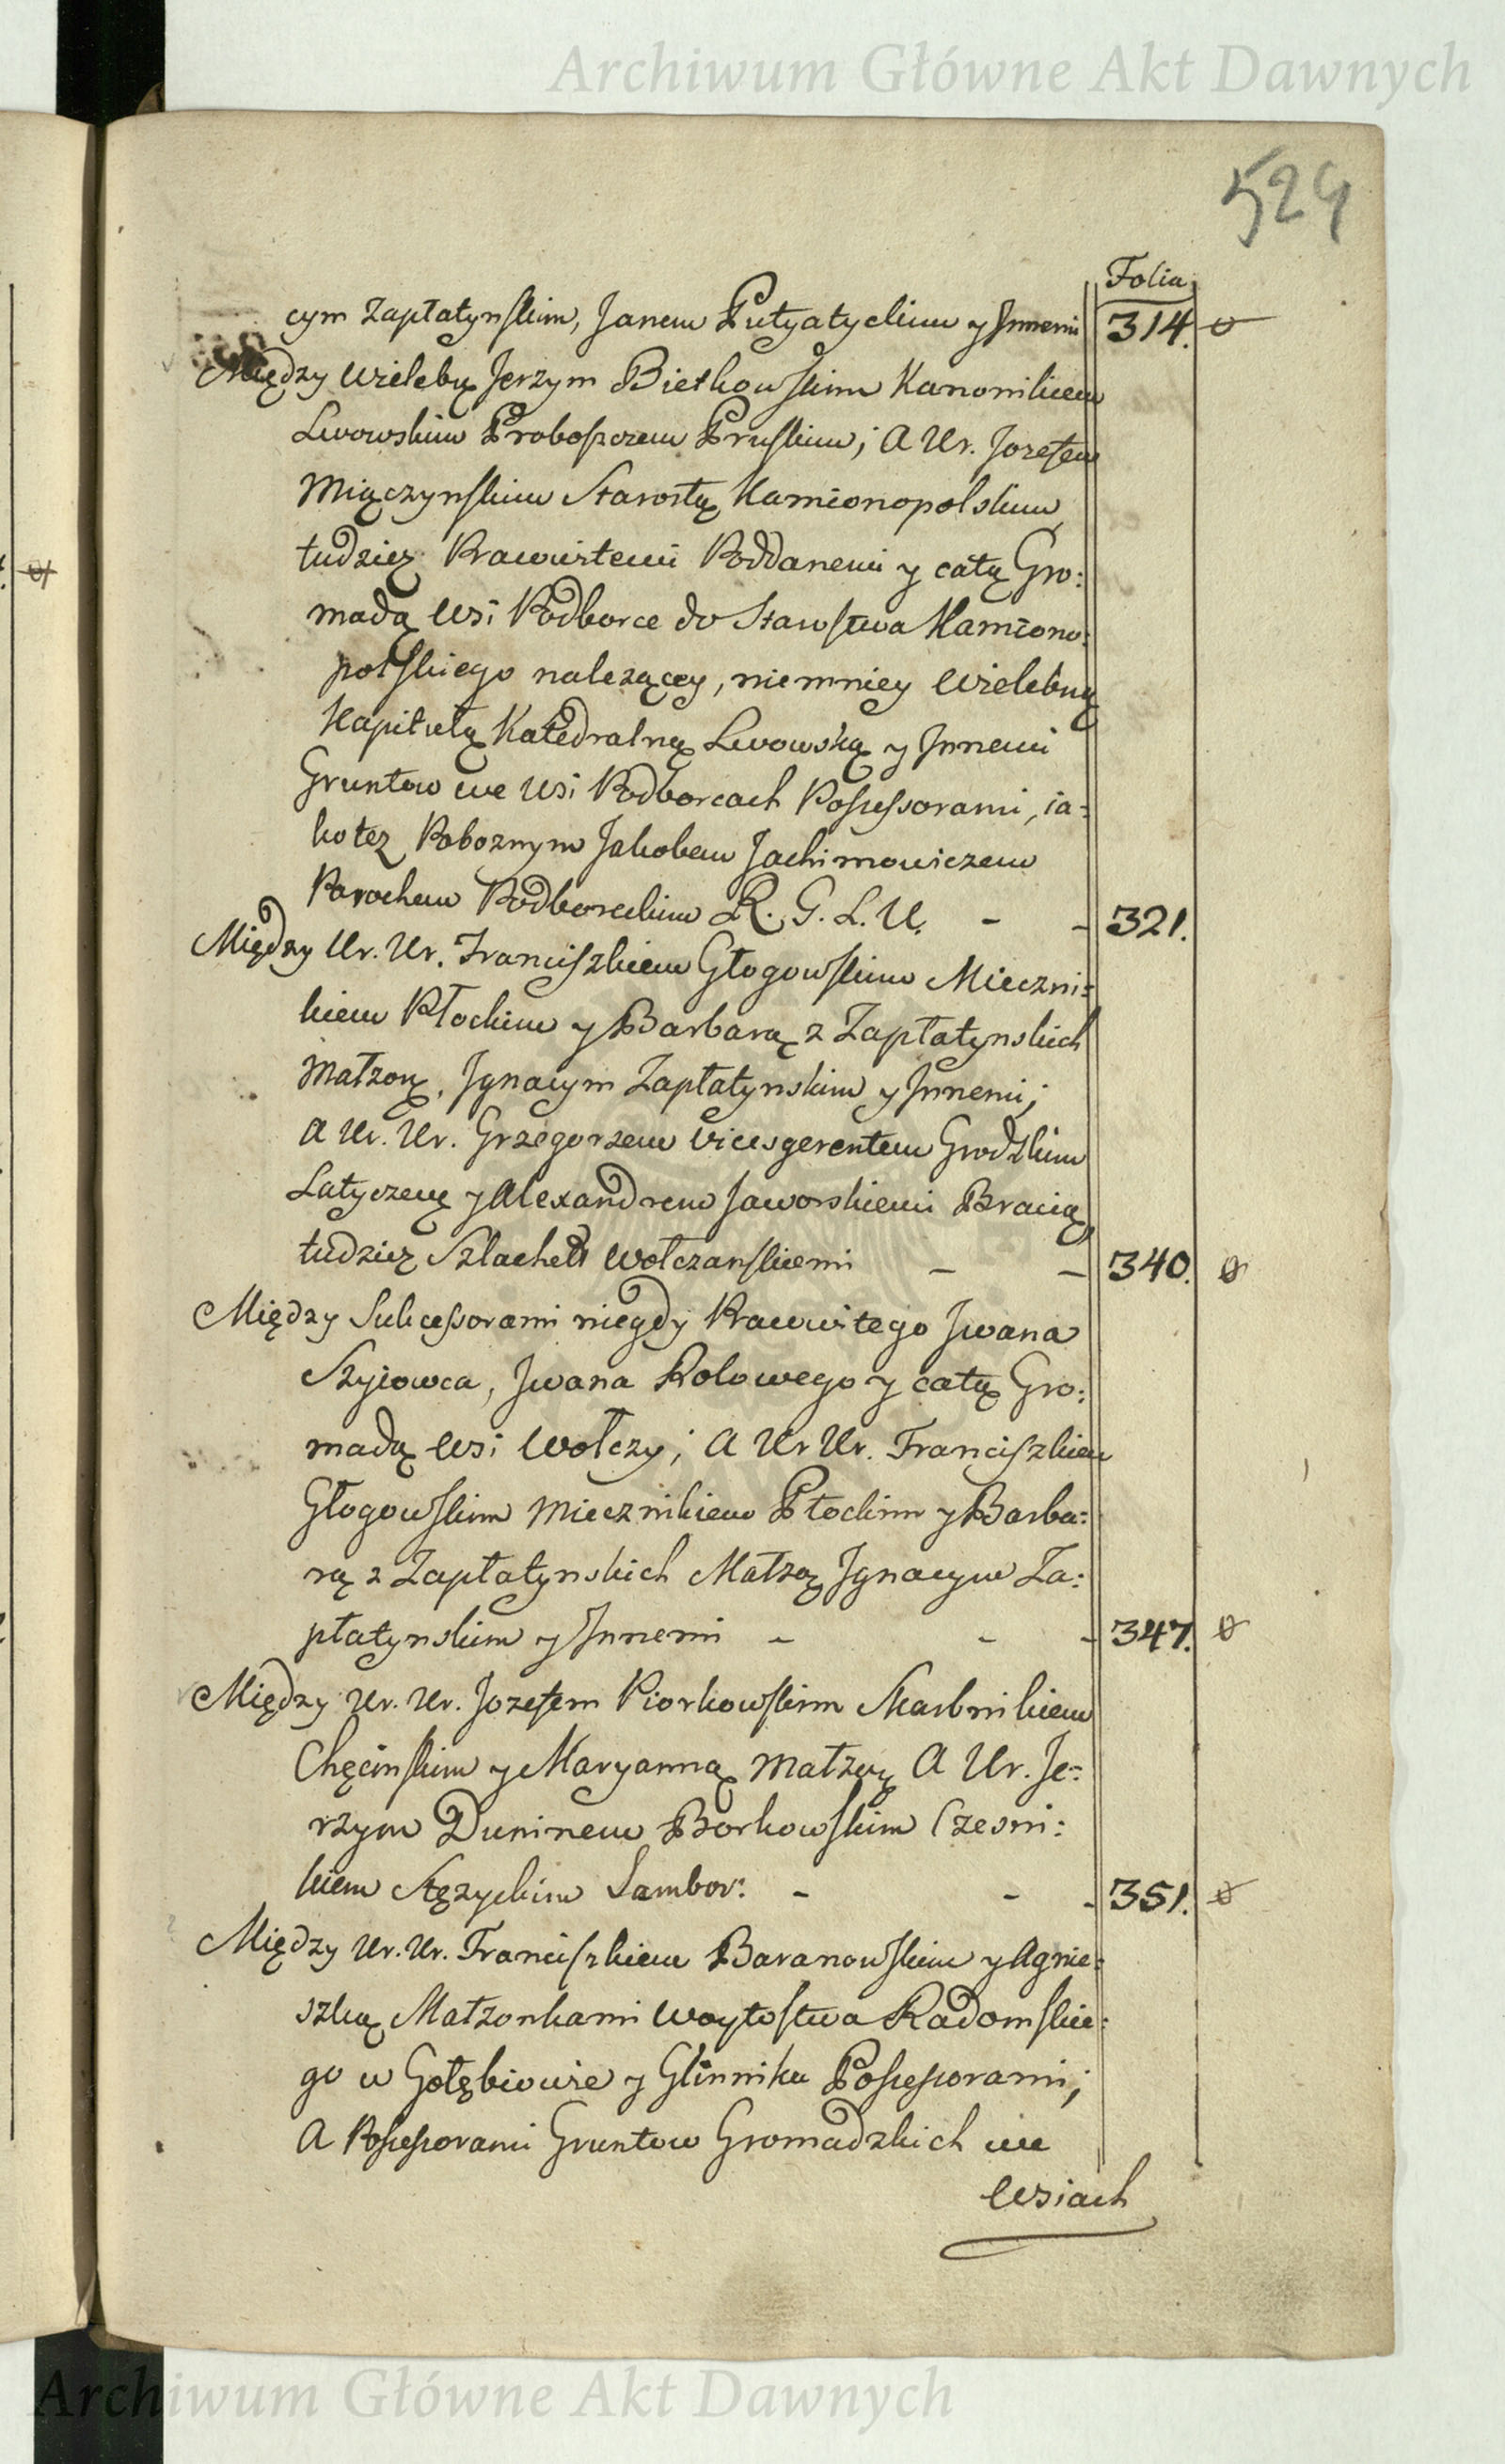 Archiwum Główne Akt Dawnych
529
Folia
cym Zapłatynskim, Janem Putyatyckim y Innemi 314.
Między Wielebą Jerzym Bielkowskim Kanonikiem
Lwowskim Proboszczem Pruskim; A Ur. Jozefem
Miączynskim Starostą Kamionopolskim,
tudziez Prawitemi Poddanemi y całą Gro:
madą Wsi Podborce do Stawstwa Kamiono:
polskiego nalezącey, niemniey Wielebną
Kapitułą Katedralną Lwowską y Innemi
Gruntow we Wsi Podborcach Possessorami, ia:
ko tez Poboznym Jakobem Jachimowiczem
Parochem Podboreckim R. G. L. U. - - 321.
Między Ur. Ur. Franciszkiem Głogowskim Mieczni:
kiem Płockim y Barbarą z Zapłatynskich
Małzoną, Ignacym Zapłatynskim y Innemi;
A Ur. Ur. Grzegorzem Vicesgerentem Grodzkim
Latyczewę y Alexandrem Jaworskiemi Bracią,
tudziez Szlachetą Wołczanskiemi - - 340.
Między Sukcessorami niegdy Prawitego Iwana
Szyiowca, Iwana Rolowego y całą Gro:
madą Wsi Wołczy; A Ur Ur. Franciszkiem
Głogowskim Miecznikiem Płockim y Barba:
rą z Zapłatynskich Małzą Ignacym Za:
płatynskim y Innemi - - - 347.
Między Ur. Ur. Jozefem Piorkowskim Skarbnikiem
Chęcinskim y Maryanną Małzą A Ur. Je:
rzym Duninem Borkowskim Czesni:
kiem Stęzyckim Sambor: - - - 351.
Między Ur. Ur. Franciszkiem Baranowskim y Agnie:
szką Małzonkami Woytostwa Radomskie:
go w Gołębiowie y Glinniku Possessorami;
A Possessorami Gruntow Gromadzkich we
Wsiach
Archiwum Główne Akt Dawnych